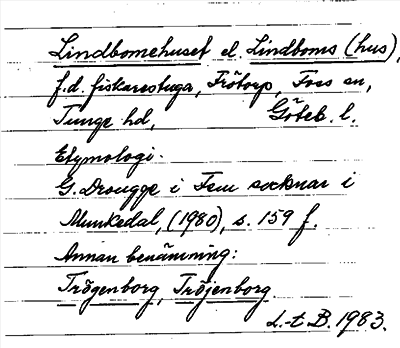 Lindbomehuset el. Lindboms (hus),
f.d. fiskarestuga, Frötorp, Foss sn,
Tunge hd, Göteb. l.
Etymologi.
G. Drougge i Fem socknar i
Munkedal, (1980), s. 159 f.
Annan benämning:
Trögenborg, Tröjenborg
L.-t B. 1983.